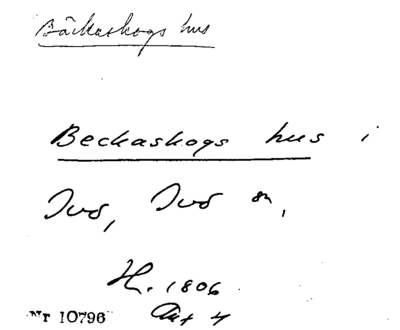 Bäckaskogs hus
Beckaskogs hus i
Ivö, Ivö sn,
H. 1806
Nr 10796 Akt 4